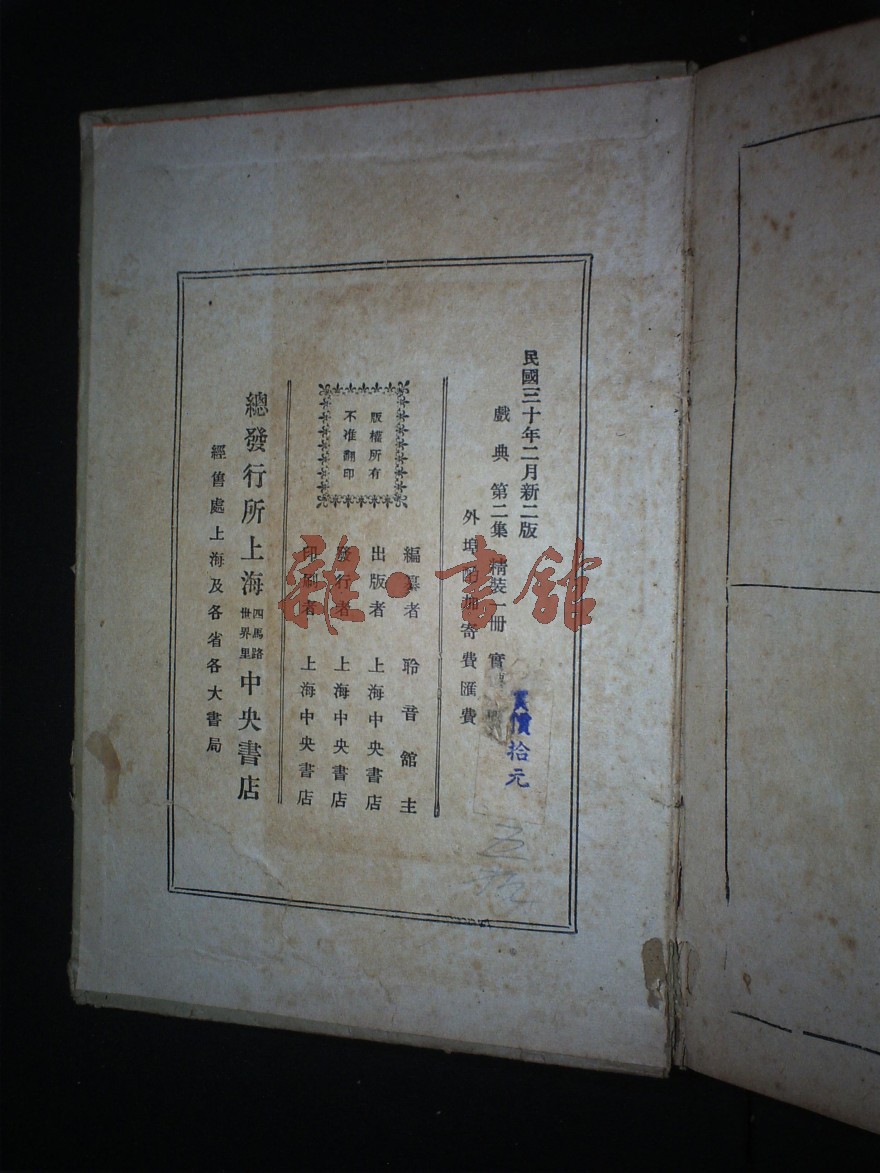 民國三十年二月新二版
戲典 第二集 精裝一冊 實
實價拾元
外埠 加寄費匯費
編纂者 聆音館主
出版者 上海中央書店
發行者 上海中央書店
印刷者 上海中央書店
版權所有
不准翻印
總發行所上海四馬路世界里中央書店
經售處上海及各省各大書局
雜·書館